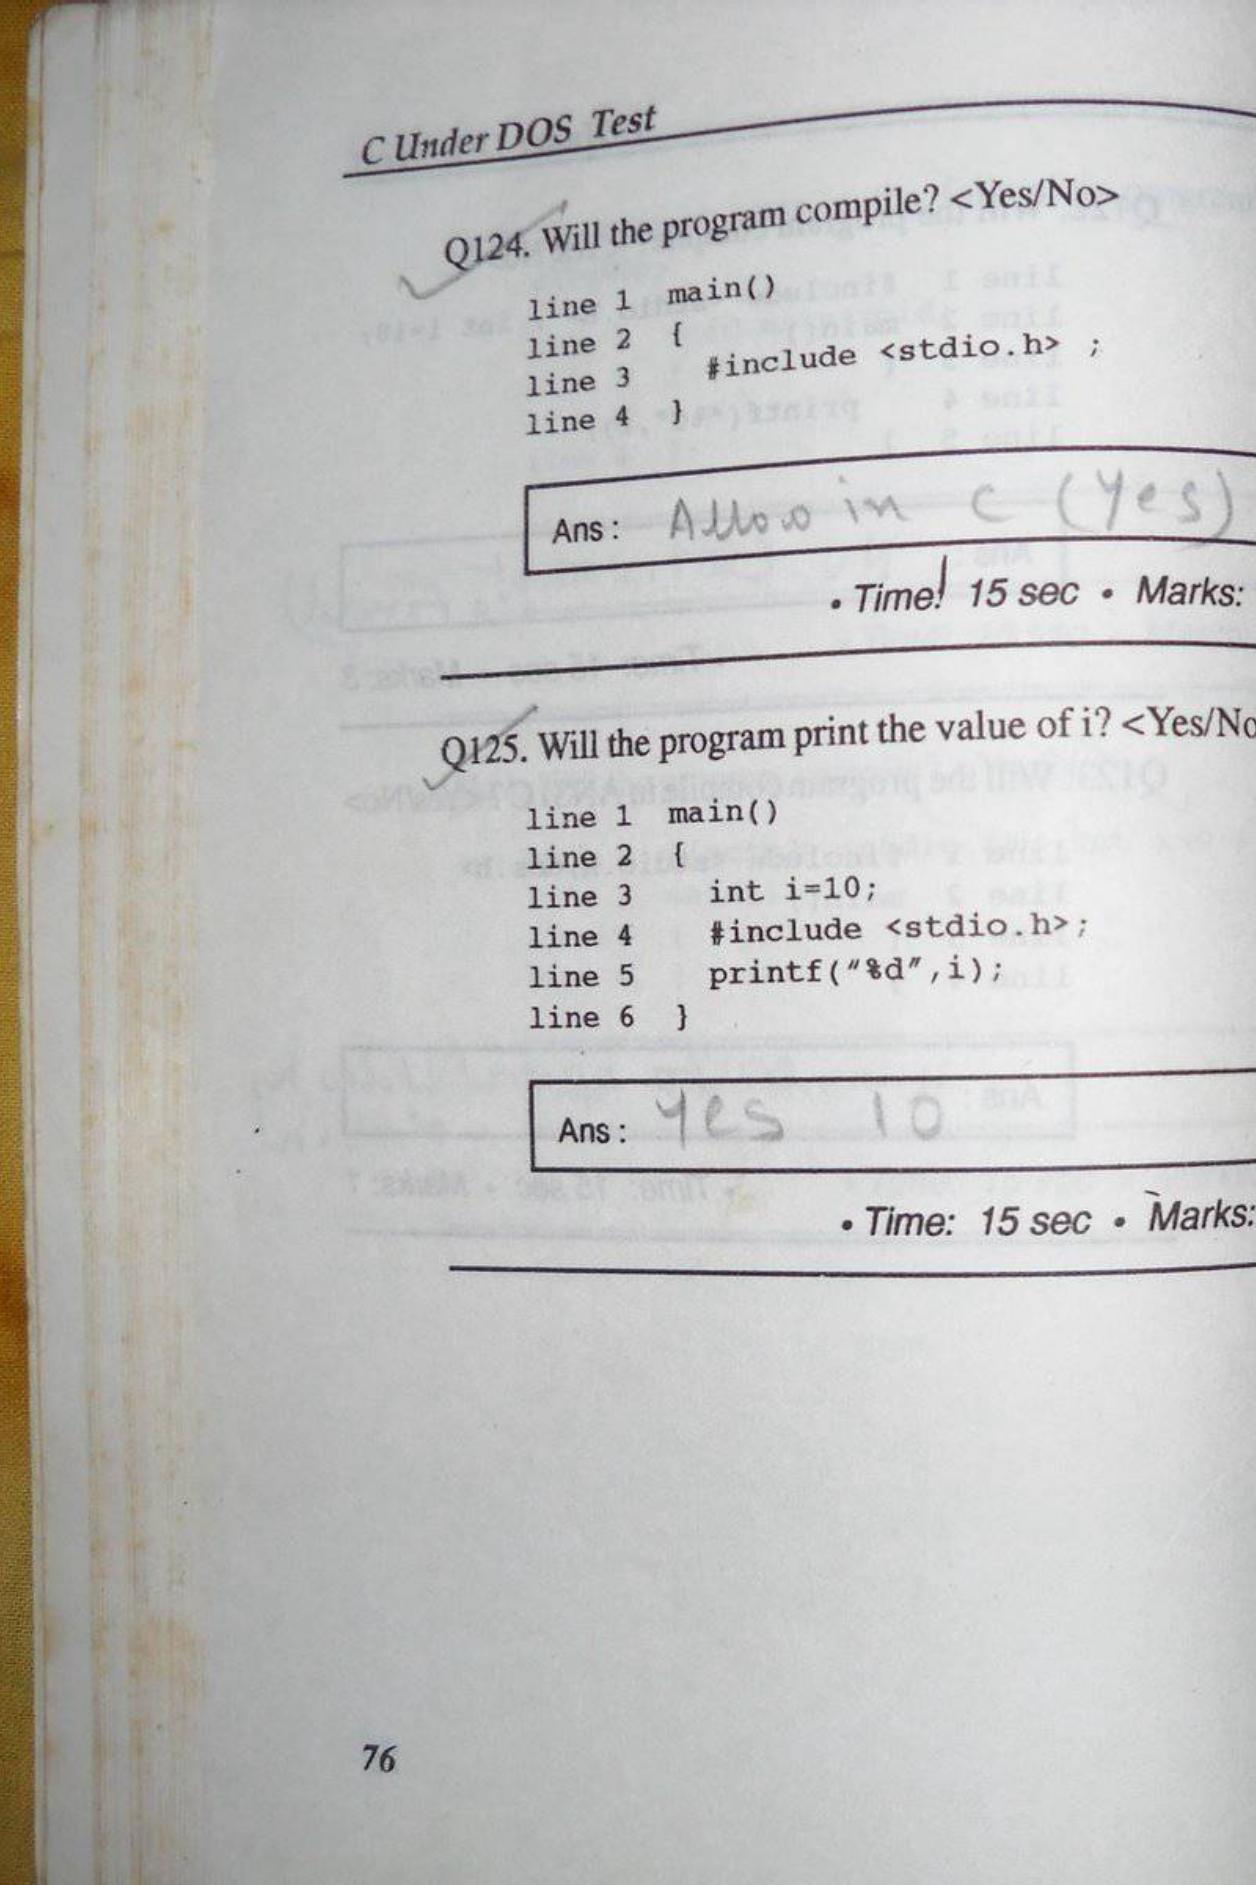 C Under DOS Test
Q124. Will the program compile? <Yes/No>
line 1 main()
line 2 {
line 3 #include <stdio.h> ;
line 4 }
Ans : Allow in C (Yes)
• Time: 15 sec • Marks:
Q125. Will the program print the value of i? <Yes/No
line 1 main()
line 2 {
line 3 int i=10;
line 4 #include <stdio.h>;
line 5 printf("%d",i);
line 6 }
Ans : Yes 10
• Time: 15 sec • Marks:
76